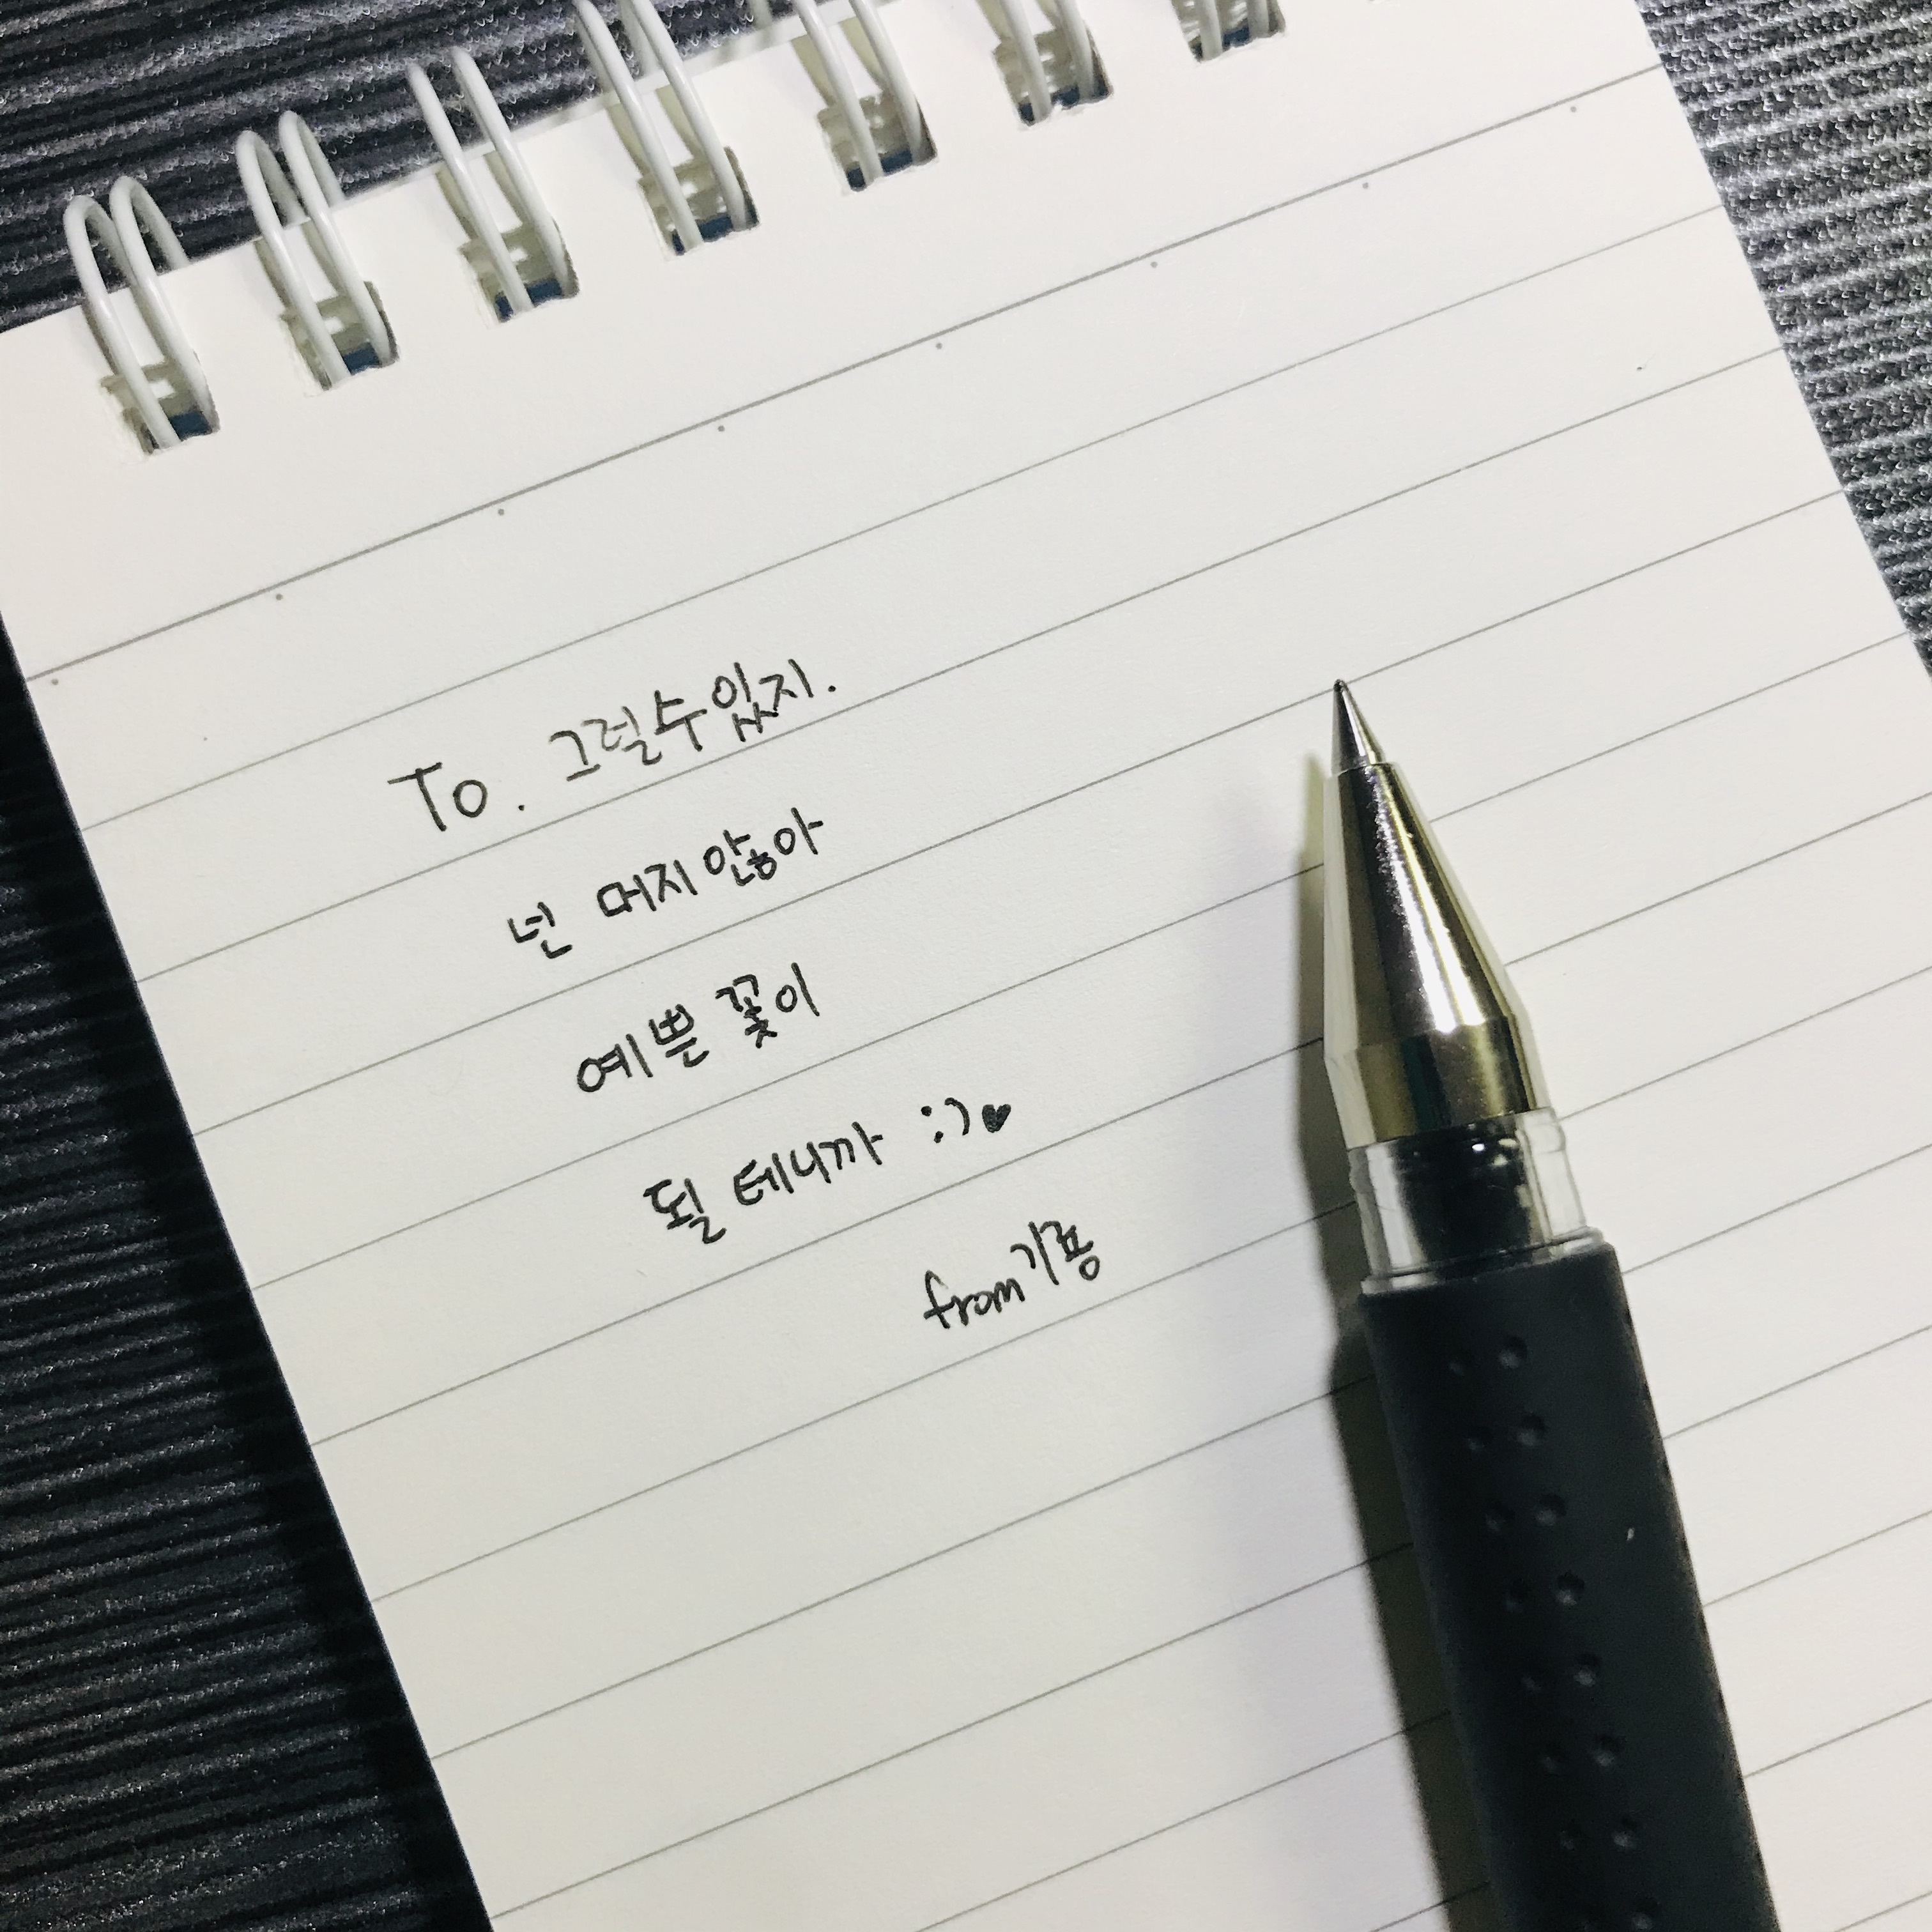 To. 그럴수있지.
넌 머지않아
예쁜 꽃이
될 테니까 :)♥
from기룡